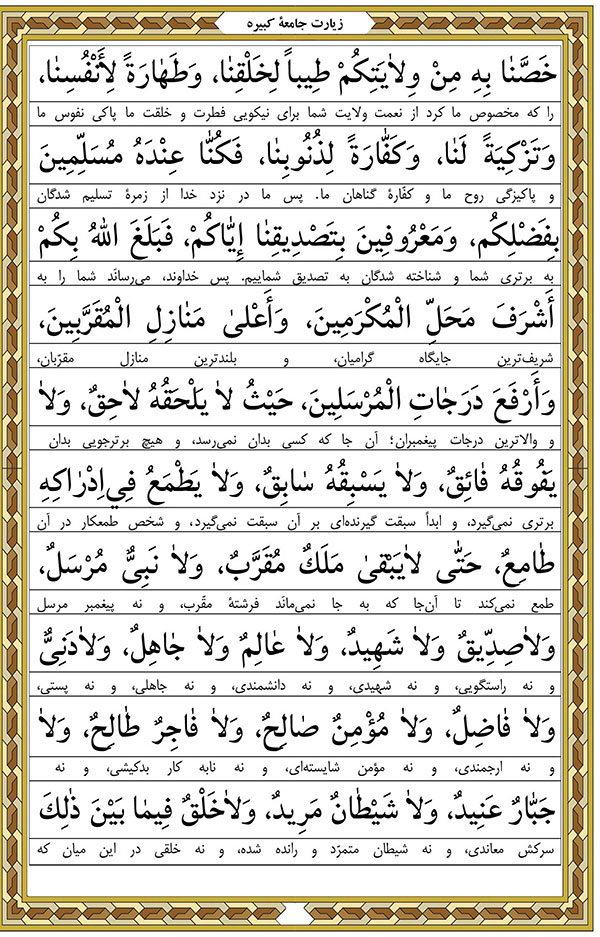 زیارت جامعهٔ کبیره
خَصَّنٰا بِهِ مِنْ وِلاٰیَتِکُمْ طٖیباً لِخَلْقِنٰا، وَطَهٰارَةً لِأَنْفُسِنٰا،
را که مخصوص ما کرد از نعمت ولایت شما برای نیکویی فطرت و خلقت ما پاکی نفوس ما
وَتَزْکِیَةً لَنٰا، وَکَفّٰارَةً لِذُنُوبِنٰا، فَکُنّٰا عِنْدَهُ مُسَلِّمٖینَ
و پاکیزگی روح ما و کفّارهٔ گناهان ما. پس ما در نزد خدا از زمرهٔ تسلیم شدگان
بِفَضْلِکُم، وَمَعْرُوفٖینَ بِتَصْدٖیقِنٰا إِیّٰاکُمْ، فَبَلَغَ اللهُ بِکُمْ
به برتری شما و شناخته شدگان به تصدیق شماییم. پس خداوند، می‌رساند شما را به
أَشْرَفَ مَحَلِّ الْمُکْرَمٖینَ، وَأَعْلیٰ مَنٰازِلِ الْمُقَرَّبٖینَ،
شریف‌ترین جایگاه گرامیان، و بلندترین منازل مقرّبان،
وَأَرْفَعَ دَرَجٰاتِ الْمُرْسَلٖینَ، حَیْثُ لاٰ یَلْحَقُهُ لاٰحِقٌ، وَلاٰ
و والاترین درجات پیغمبران؛ آن جا که کسی بدان نمی‌رسد، و هیچ برترجویی بدان
یَفُوقُهُ فٰائِقٌ، وَلاٰ یَسْبِقُهُ سٰابِقٌ، وَلاٰ یَطْمَعُ فٖي إِدْرٰاکِهِ
برتری نمی‌گیرد، و ابداً سبقت گیرنده‌ای بر آن سبقت نمی‌گیرد، و شخص طمعکار در آن
طٰامِعٌ، حَتّٰی لاٰیَبْقیٰ مَلَکٌ مُقَرَّبٌ، وَلاٰ نَبِیٌّ مُرْسَلٌ،
طمع نمی‌کند تا آن‌جا که به جا نمی‌ماند فرشتهٔ مقّرب، و نه پیغمبر مرسل
وَلاٰصِدّٖیقٌ وَلاٰ شَهٖیدٌ، وَلاٰ عٰالِمٌ وَلاٰ جٰاهِلٌ، وَلاٰدَنِیٌّ
و نه راستگویی، و نه شهیدی، و نه دانشمندی، و نه جاهلی، و نه پستی،
وَلاٰ فٰاضِلٌ، وَلاٰ مُؤْمِنٌ صٰالِحٌ، وَلاٰ فٰاجِرٌ طٰالِحٌ، وَلاٰ
و نه ارجمندی، و نه مؤمن شایسته‌ای، و نه نابه کار بدکیشی، و نه
جَبّٰارٌ عَنٖیدٌ، وَلاٰ شَیْطٰانٌ مَرٖیدٌ، وَلاٰخَلْقٌ فٖیمٰا بَیْنَ ذٰلِكَ
سرکش معاندی، و نه شیطان متمرّد و رانده شده، و نه خلقی در این میان که